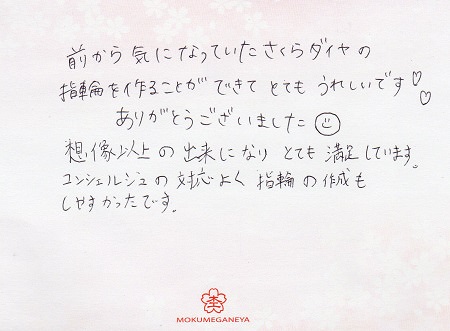 前から気になっていたさくらダイヤの
指輪を作ることができて とても うれしいです♡♡
ありがとうございました☺
想像以上の出来になり とても 満足しています。
コンシェルジュの対応よく 指輪の作成も
しやすかったです。
杢
MOKUMEGANEYA